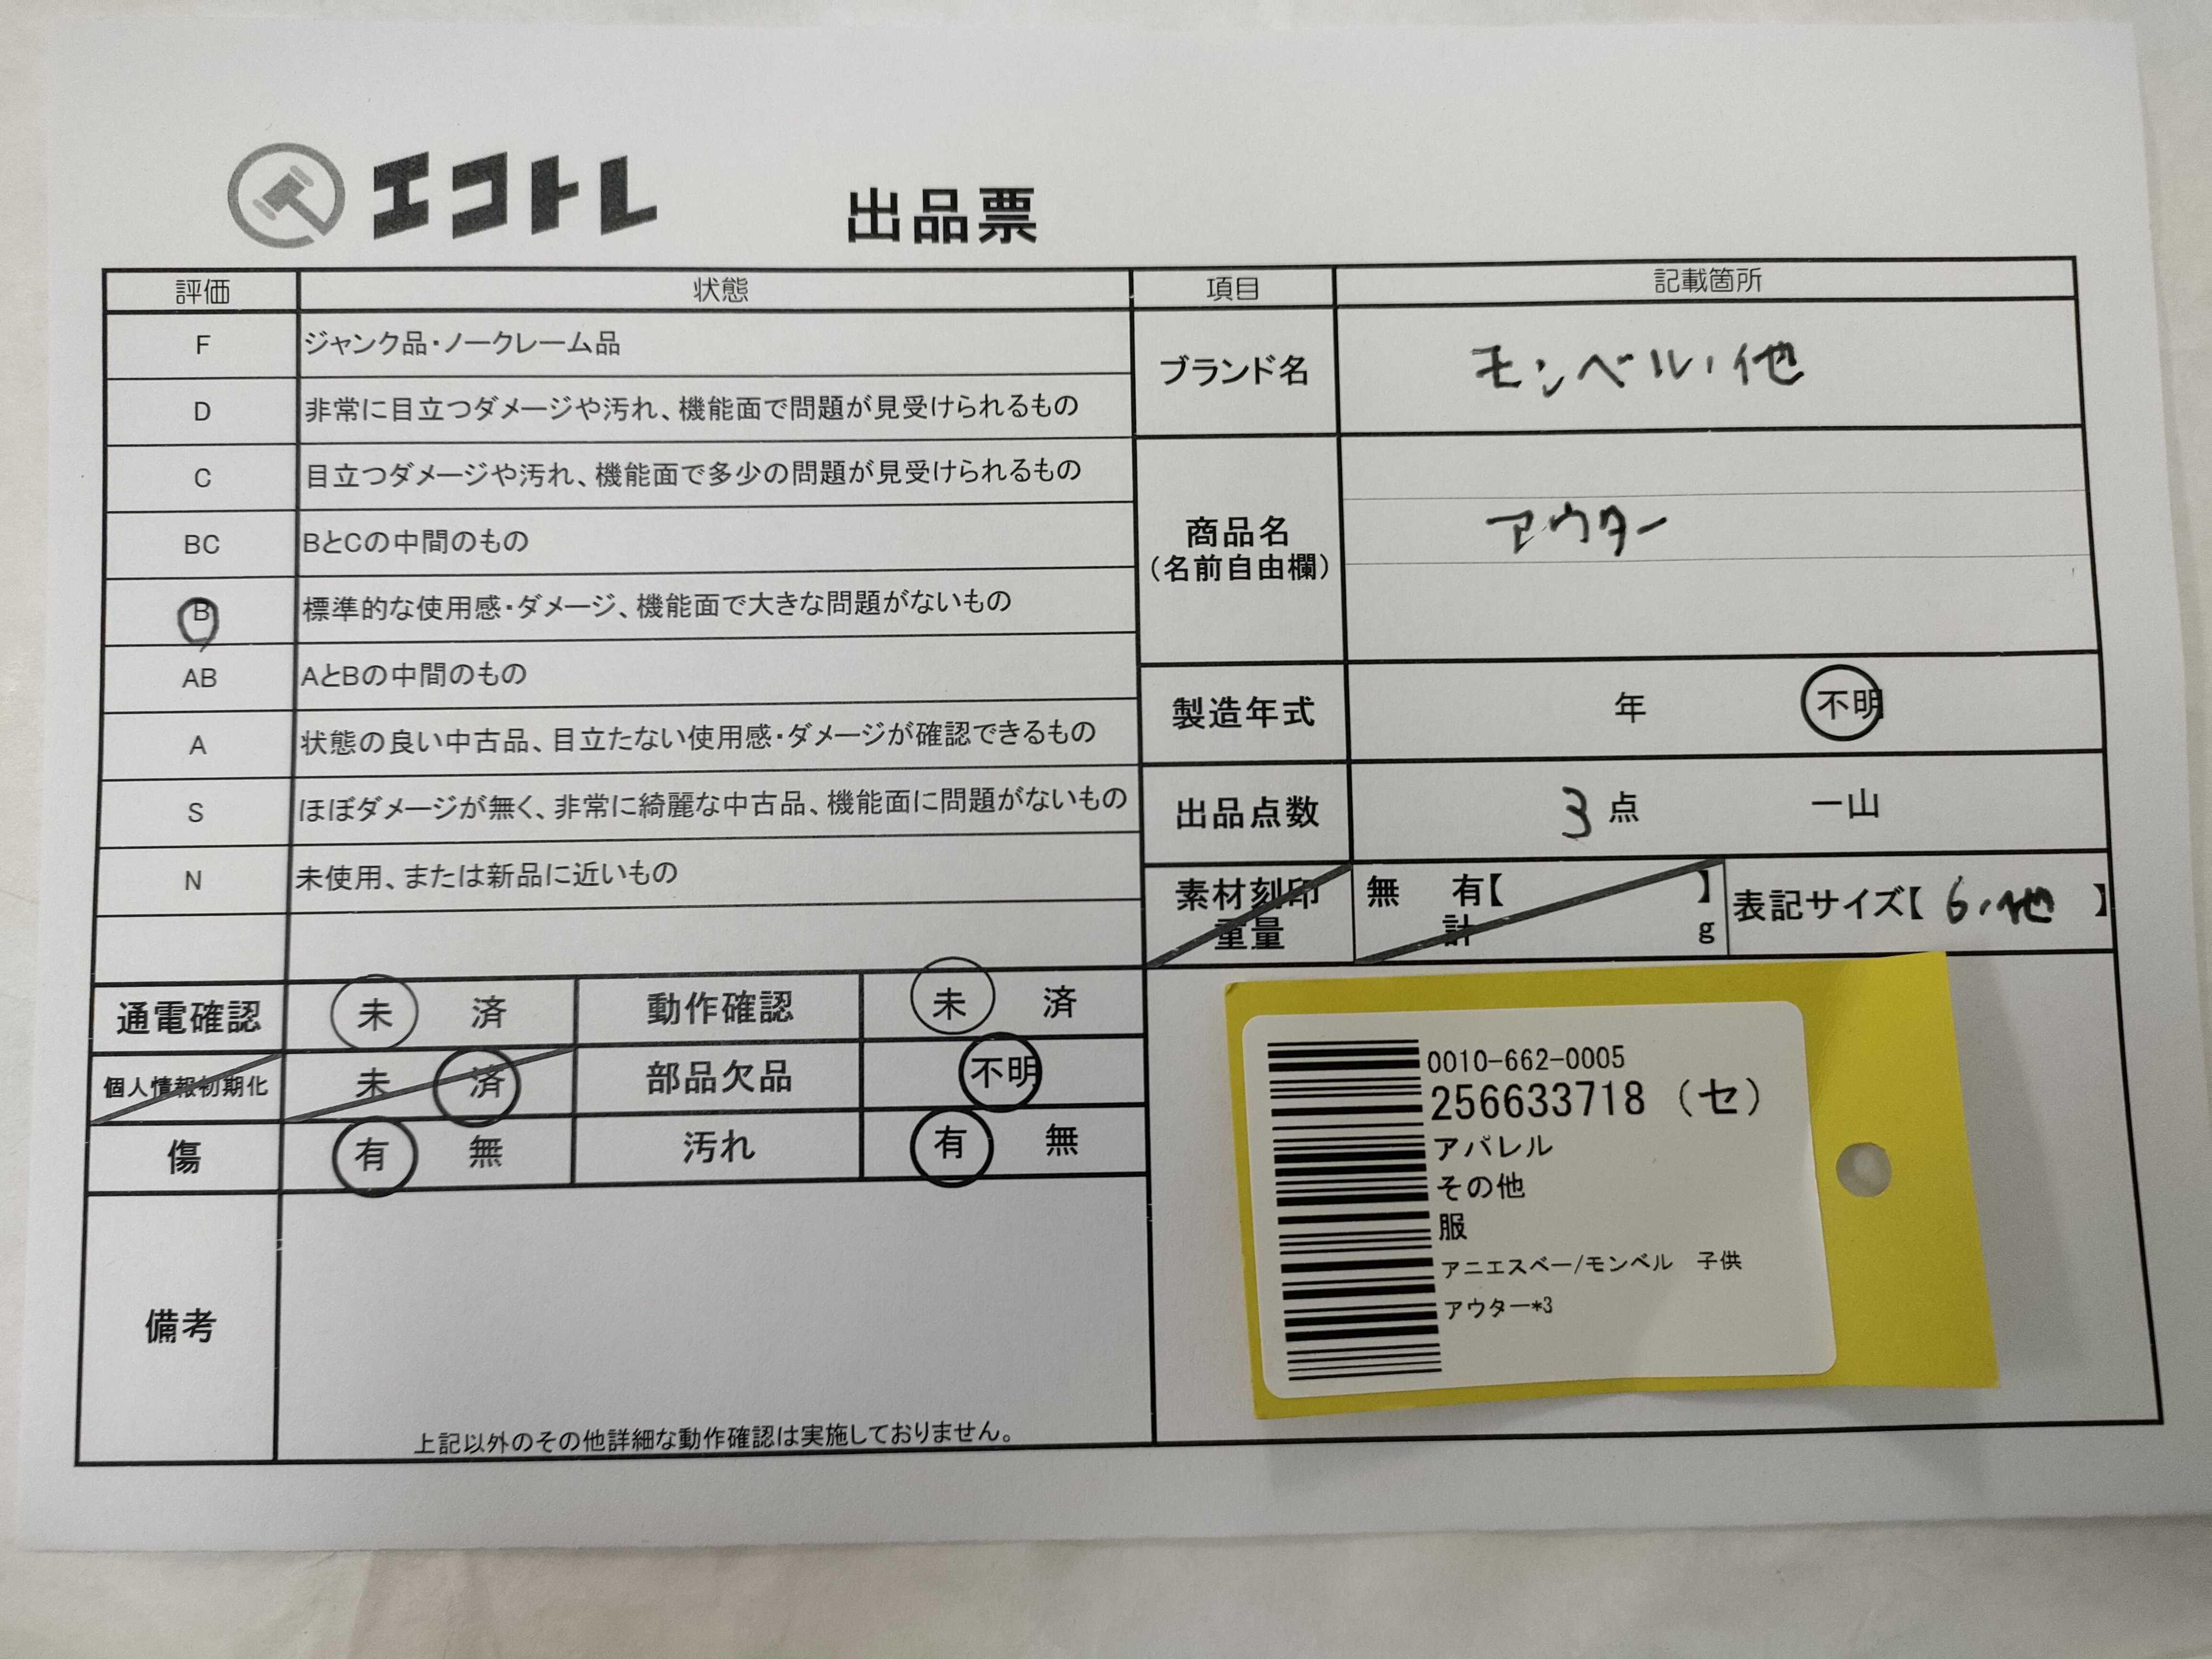 エコトレ
出品票
評価 状態
F ジャンク品・ノークレーム品
D 非常に目立つダメージや汚れ、機能面で問題が見受けられるもの
C 目立つダメージや汚れ、機能面で多少の問題が見受けられるもの
BC BとCの中間のもの
B 標準的な使用感・ダメージ、機能面で大きな問題がないもの
AB AとBの中間のもの
A 状態の良い中古品、目立たない使用感・ダメージが確認できるもの
S ほぼダメージが無く、非常に綺麗な中古品、機能面に問題がないもの
N 未使用、または新品に近いもの
項目 記載箇所
ブランド名 モンベル、他
商品名
(名前自由欄)
アウター
製造年式 年 不明
出品点数 3 点 一山
素材刻印
重量
無 有【 】
計 g
表記サイズ【 6、他 】
通電確認 未 済 動作確認 未 済
個人情報初期化 未 済 部品欠品 不明
傷 有 無 汚れ 有 無
備考
上記以外のその他詳細な動作確認は実施しておりません。
0010-662-0005
256633718 (セ)
アパレル
その他
服
アニエスベー/モンベル 子供
アウター*3